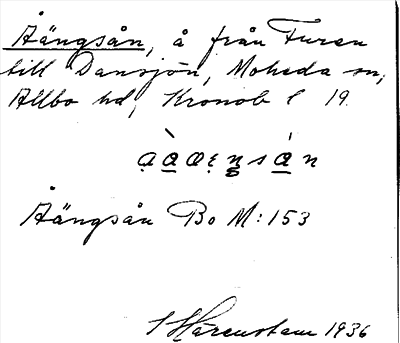 Åängsån, å från Furen
till Dansjön, Moheda sn,
Allbo hd, Kronob l 19.
Åängsån Bo M:153
S Härenstam 1936